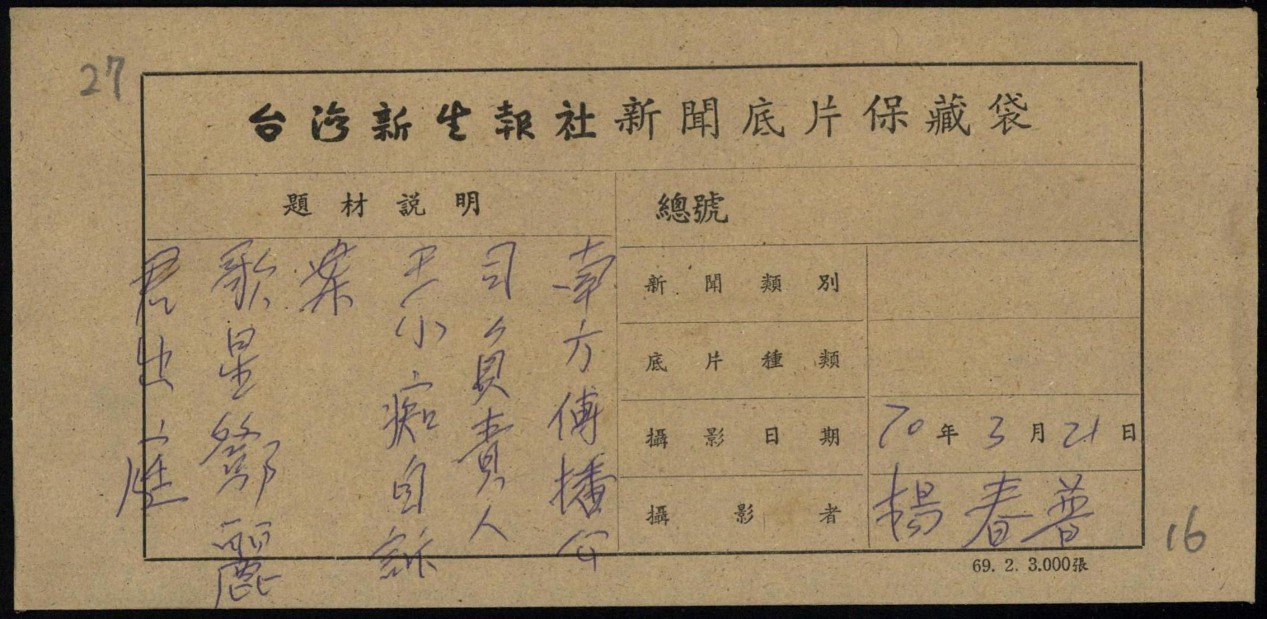 27
台湾新生報社新聞底片保藏袋
題材說明
南方傳播公
司負責人
王小痴自訴
案
歌星鄧麗
君出庭
總號
新聞類別
底片種類
攝影日期 70年3月21日
攝影者 楊春普
69. 2. 3.000張
16